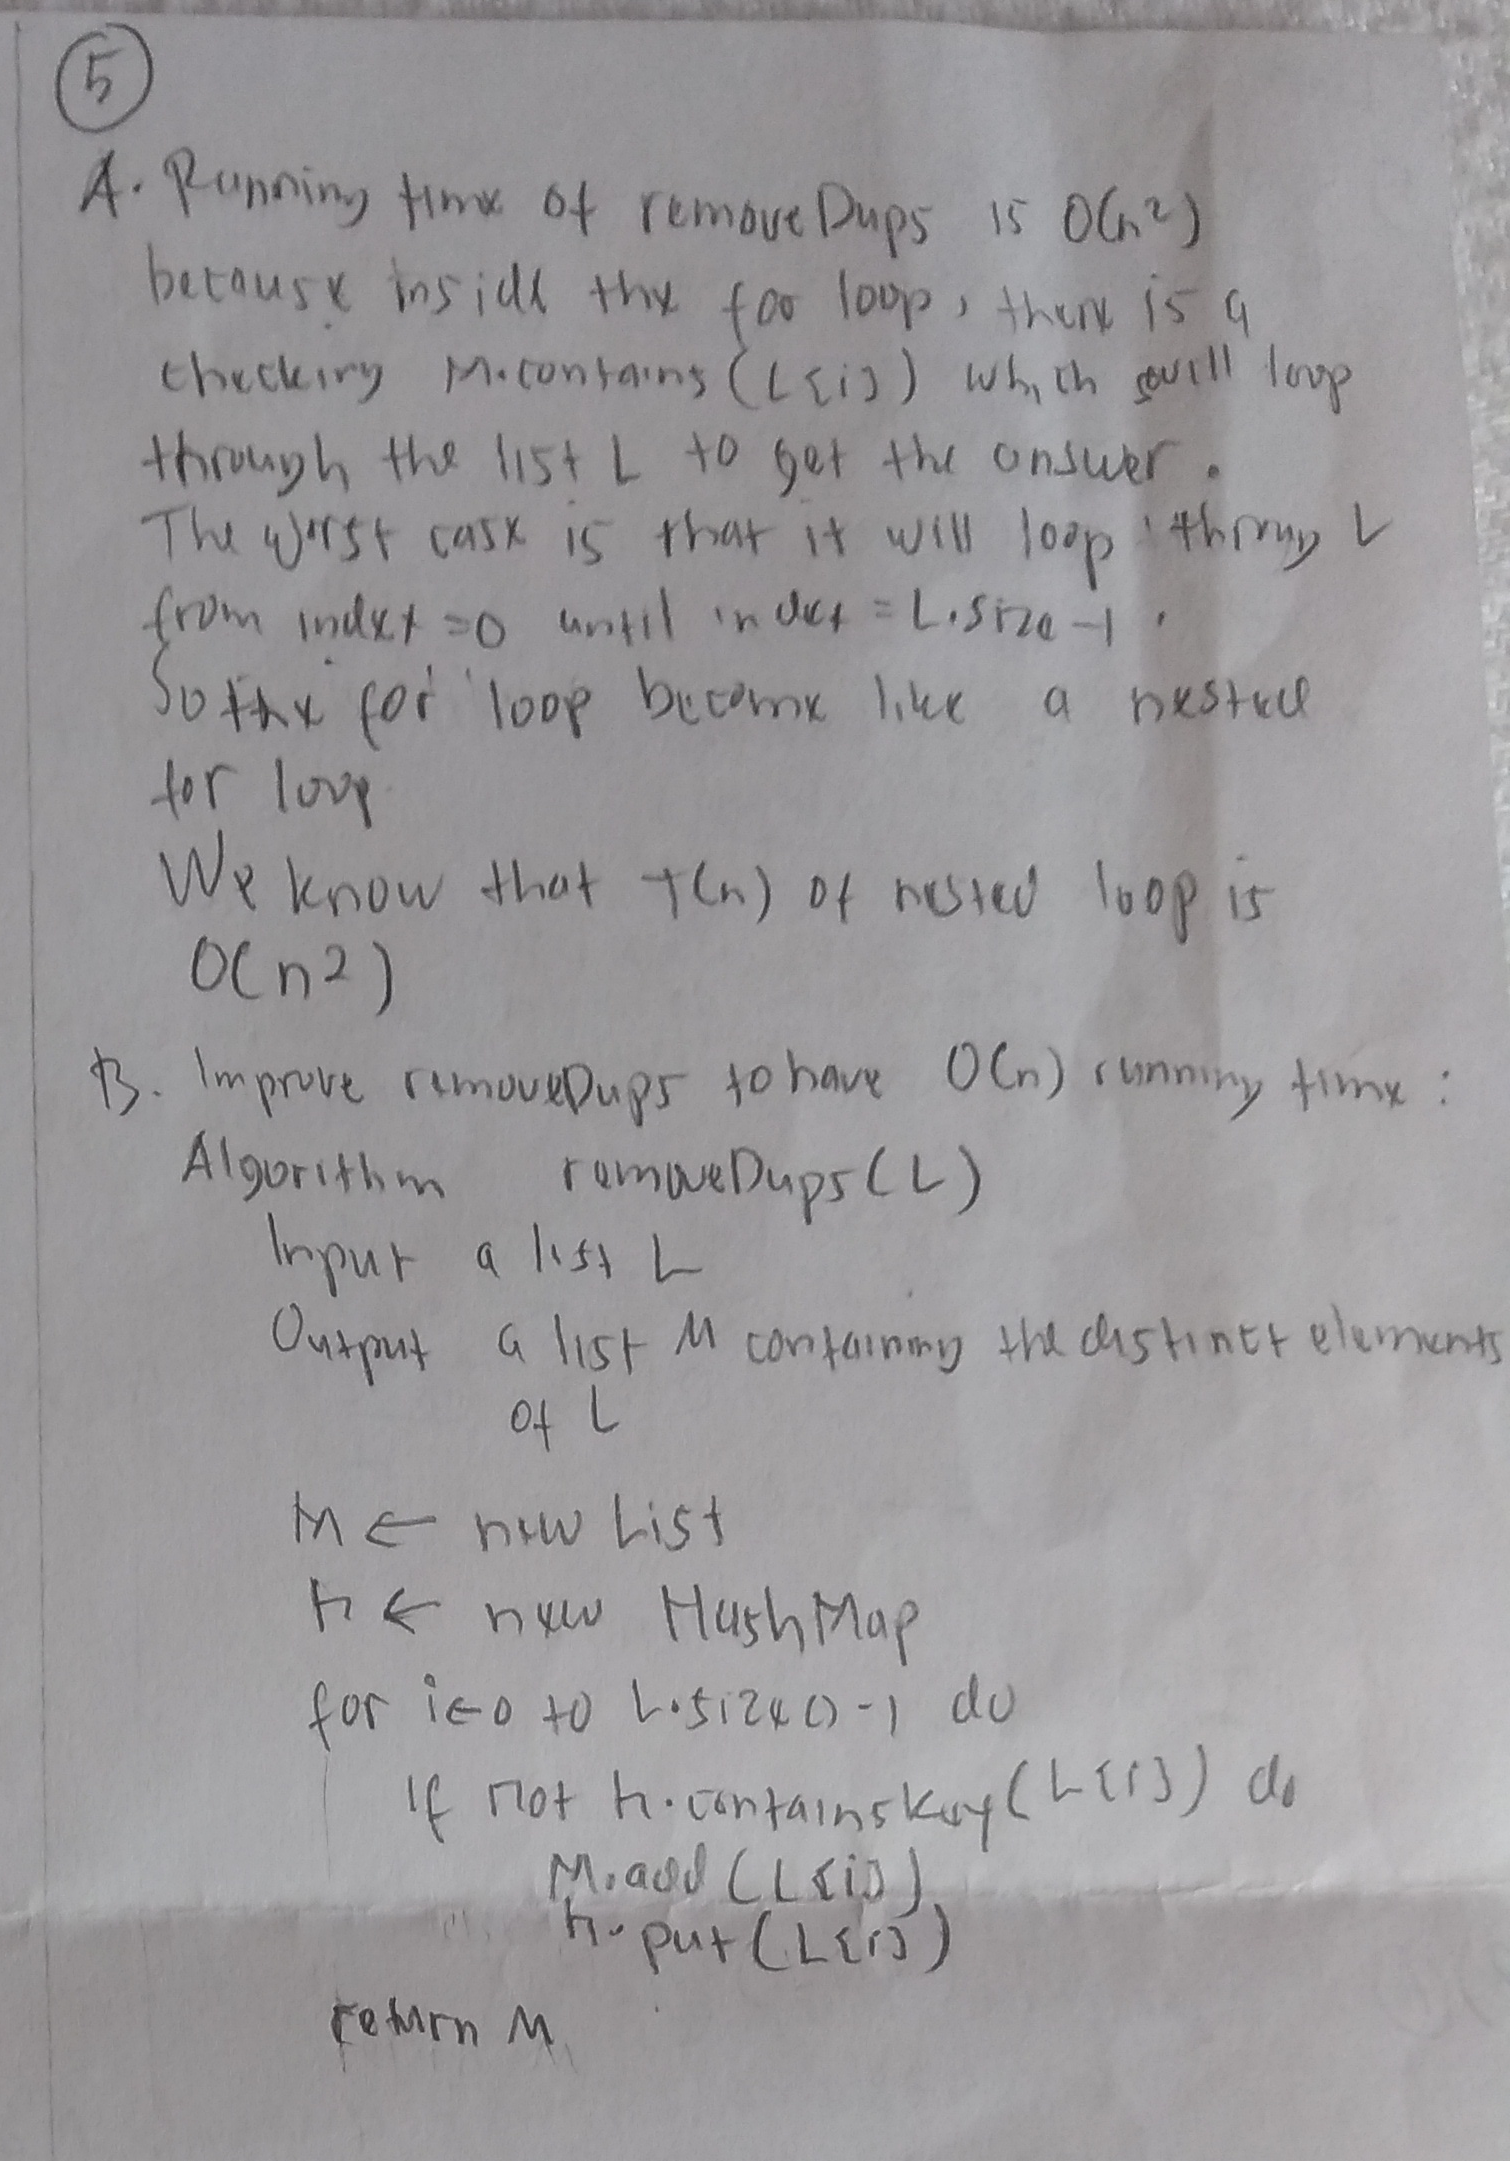 5
A. Running time of removeDups is O(n²)
because inside the for loop, there is a
checking M.contains(L[i]) which will loop
through the list L to get the answer.
The worst case is that it will loop throug L
from index=0 until index = L.size-1.
So the for loop become like a nested
for loop
We know that T(n) of nested loop is
O(n²)
B. Improve removeDups to have O(n) running time:
Algorithm removeDups(L)
Input a list L
Output a list M containing the distinct elements
of L
M ← new List
h ← new HashMap
for i←0 to L.size()-1 do
if not h.containskey(L[i]) do
M.add(L[i])
h.put(L[i])
return M